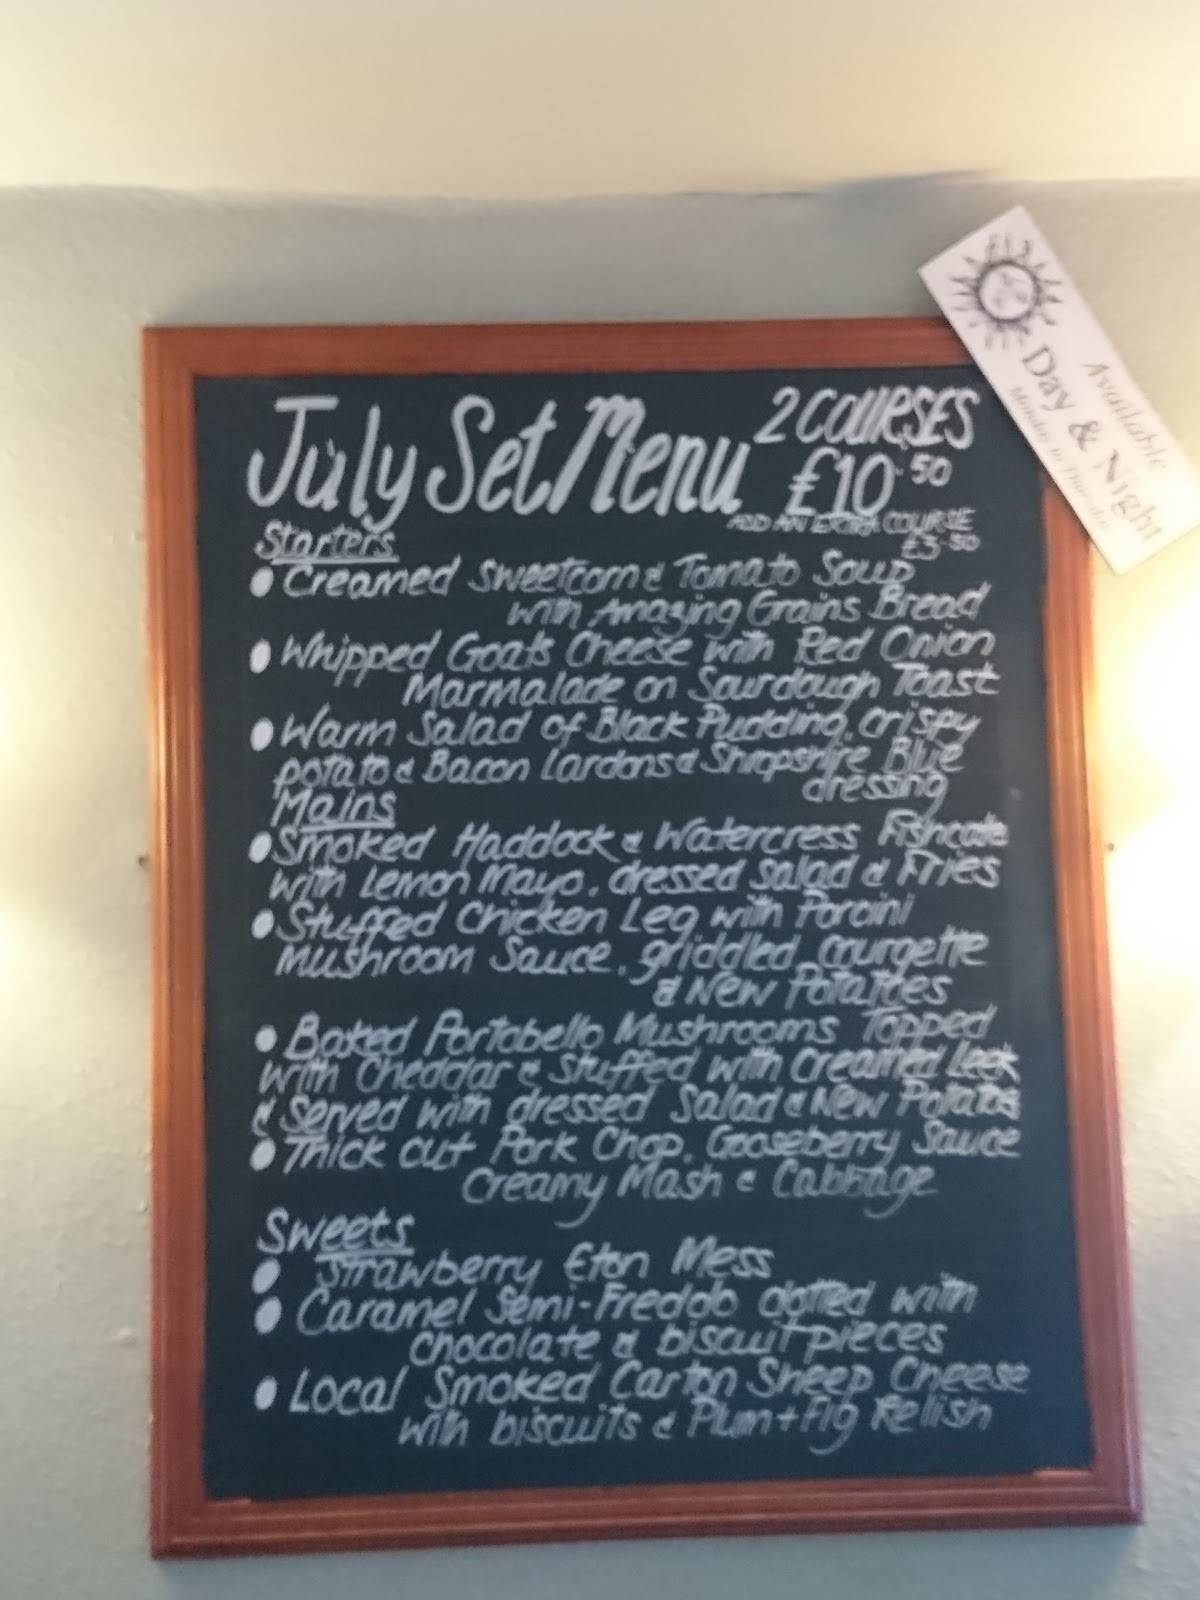 July Set Menu
2 COURSES
£10.50
ADD AN EXTRA COURSE
£3.50
Available
Day & Night
Monday to Thursday
Starters
• Creamed Sweetcorn & Tomato Soup
with Amazing Grains Bread
• Whipped Goats Cheese with Red Onion
Marmalade on Sourdough Toast
• Warm Salad of Black Pudding, crispy
potato & Bacon Lardons & Shropshire Blue
dressing
Mains
• Smoked Haddock & Watercress Fishcake
with Lemon Mayo, dressed salad & Fries
• Stuffed Chicken Leg with Porcini
Mushroom Sauce, griddled courgette
& New Potatoes
• Baked Portabello Mushrooms Topped
with Cheddar & stuffed with Creamed Leek
& Served with dressed Salad & New Potatoes
• Thick cut Pork Chop, Gooseberry Sauce
Creamy Mash & Cabbage
Sweets
• Strawberry Eton Mess
• Caramel Semi-Freddo dotted with
chocolate & biscuit pieces
• Local Smoked Carton Sheep Cheese
with biscuits & Plum + Fig Relish